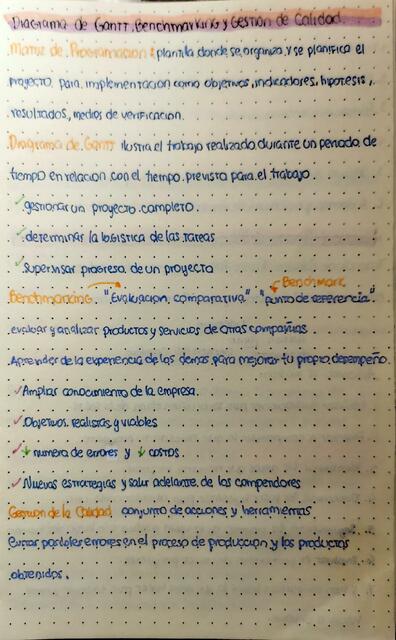 Diagrama de Gantt, Benchmarking y Gestion de Calidad
Matriz de Programacion: plantilla donde se organiza y se planifica el
proyecto para implementacion como objetivos, indicadores, hipotesis,
resultados, medios de verificacion.
Diagrama de Gantt ilustra el trabajo realizado durante un periodo de
tiempo en relacion con el tiempo previsto para el trabajo.
✓ gestionar un proyecto completo
✓ determinar la logistica de las tareas
✓ supervisar progreso de un proyecto
Benchmark
Benchmarking. "Evaluacion comparativa". "punto de referencia"
evaluar y analizar productos y servicios de otras compañias.
Aprender de la experiencia de los demas para mejorar tu propio desempeño.
✓ Ampliar conocimiento de la empresa.
✓ Objetivos realistas y viables
✓ ↓ numero de errores y ↓ costos.
✓ Nuevas estrategias y salir adelante de los competidores
Gestion de la Calidad conjunto de acciones y herramientas
Evitar posibles errores en el proceso de produccion y los productos
obtenidos.